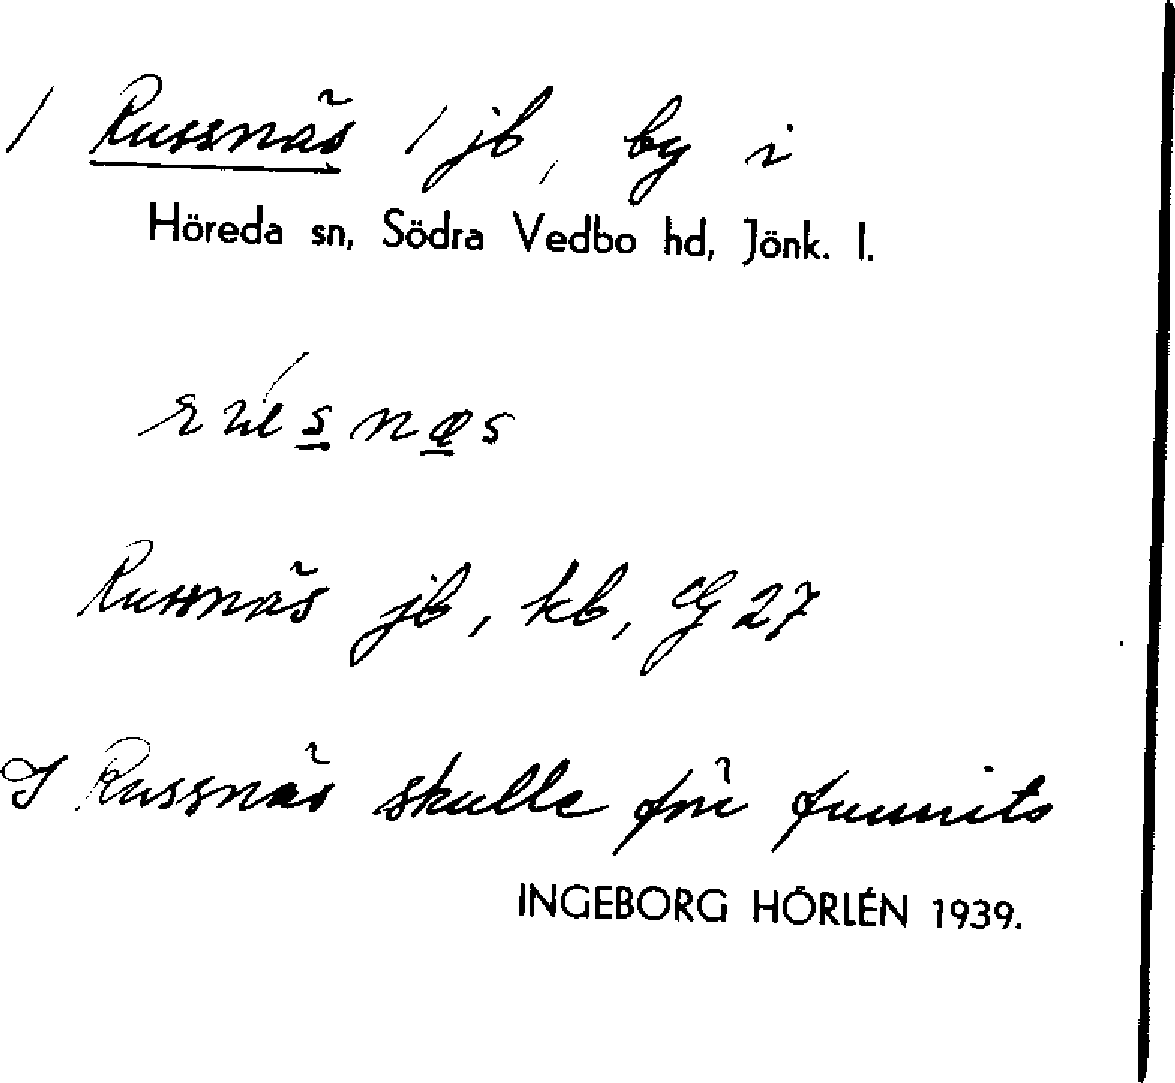 / Russnäs / jb, by i
Höreda sn, Södra Vedbo hd, Jönk. l.
Russnäs jb, kb, G 27
I Russnäs skulle för funnits
INGEBORG HÖRLÉN 1939.